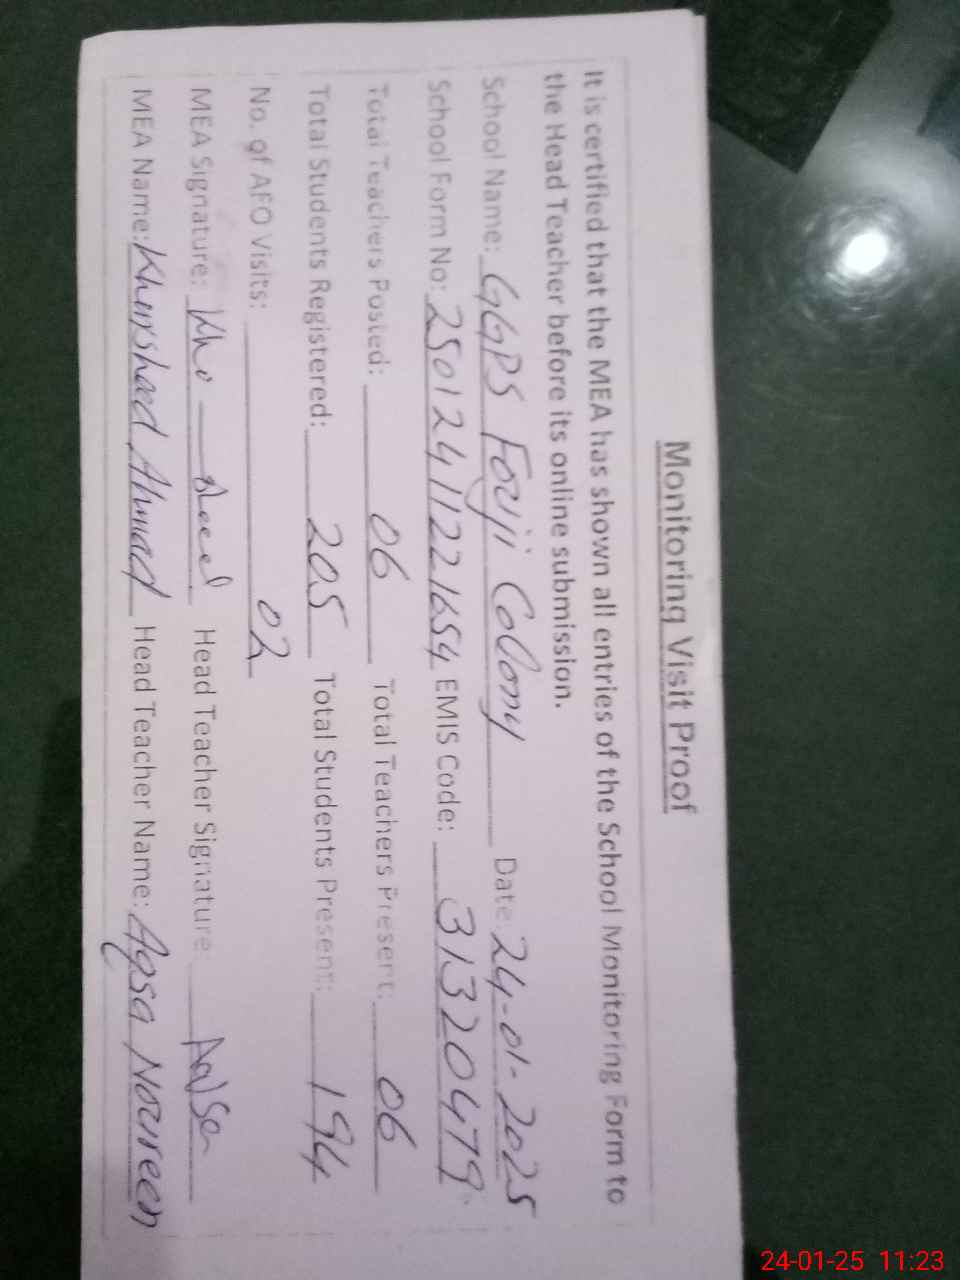 Monitoring Visit Proof
It is certified that the MEA has shown all entries of the School Monitoring Form to
the Head Teacher before its online submission.
School Name: GGPS Fouji Colony Date: 24-01-2025
School Form No: 25012411221654 EMIS Code: 31320479
Total Teachers Posted: 06 Total Teachers Present: 06
Total Students Registered: 205 Total Students Present: 194
No. of AFO Visits: 02
MEA Signature: Head Teacher Signature:
MEA Name: Khurshaed Ahmad Head Teacher Name: Aqsa Noureen
24-01-25 11:23